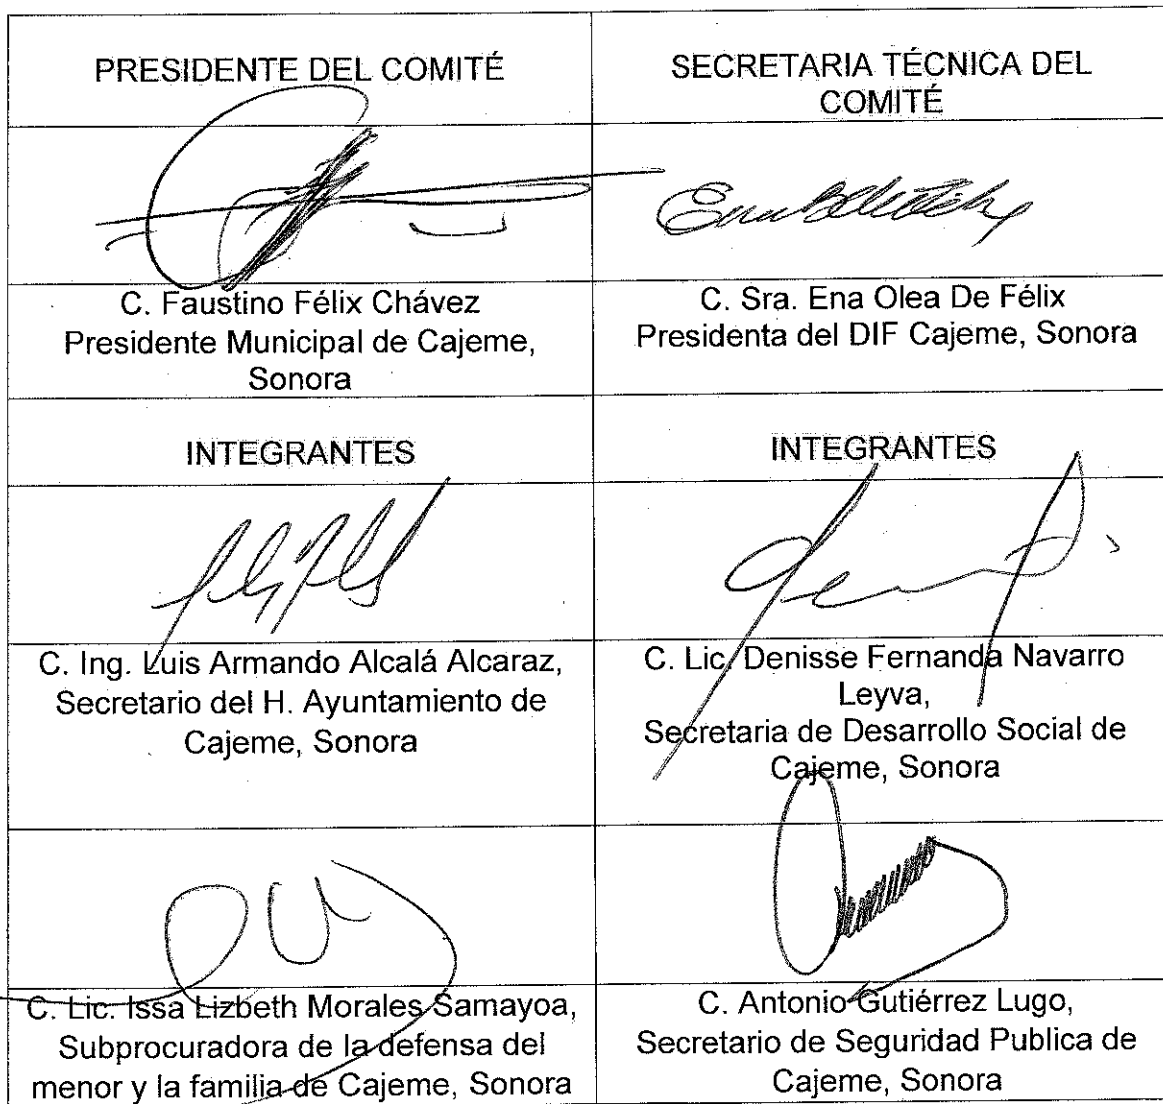 PRESIDENTE DEL COMITÉ
SECRETARIA TÉCNICA DEL
COMITÉ
C. Faustino Félix Chávez
Presidente Municipal de Cajeme,
Sonora
C. Sra. Ena Olea De Félix
Presidenta del DIF Cajeme, Sonora
INTEGRANTES
INTEGRANTES
C. Ing. Luis Armando Alcalá Alcaraz,
Secretario del H. Ayuntamiento de
Cajeme, Sonora
C. Lic. Denisse Fernanda Navarro
Leyva,
Secretaria de Desarrollo Social de
Cajeme, Sonora
C. Lic. Issa Lizbeth Morales Samayoa,
Subprocuradora de la defensa del
menor y la familia de Cajeme, Sonora
C. Antonio Gutiérrez Lugo,
Secretario de Seguridad Publica de
Cajeme, Sonora